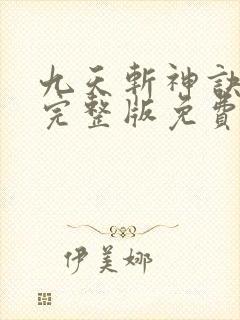 九天斬神訣
完整版免費
伊美娜